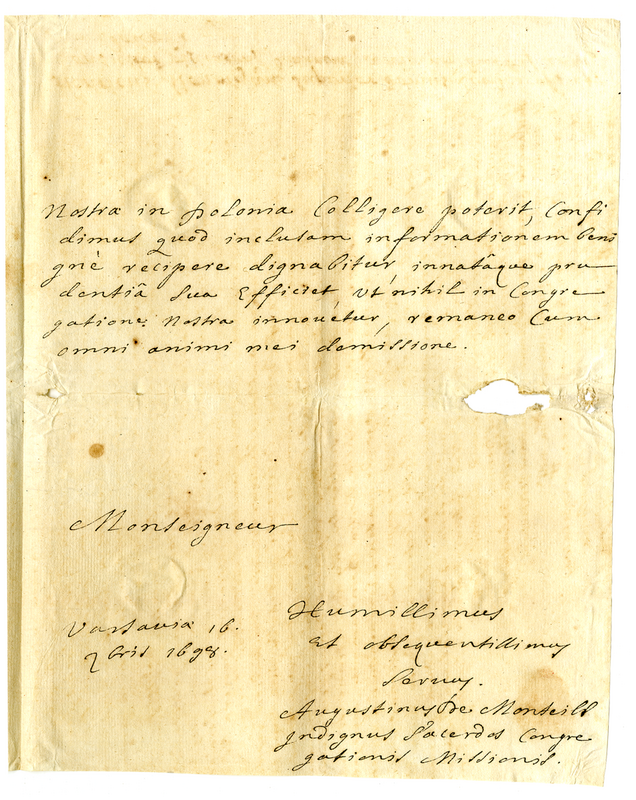 Nostræ in Polonia Colligere poterit, Confi
dimus quod inclusam informationem beni
gnè recipere dignabitur, innatâque pru
dentiâ sua Efficiet, Vt nihil in Congre
gatione Nostra innouétur, remaneo Cum
omni animi mei demissione.
Monseigneur
Varsauiæ 16.
bris 1698.
Humillimus
Et obsequentissimus
Seruus.
Augustinus De Monteils
Indignus Sacerdos Congre
gationis Missionis.